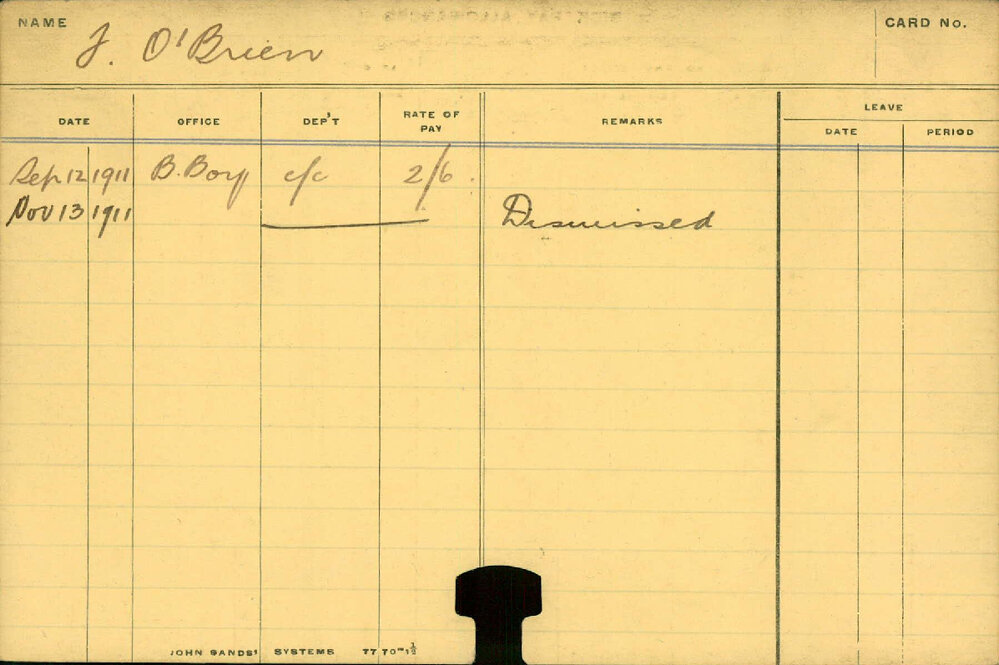 NAME J. O'Brien CARD No.
DATE OFFICE DEP'T RATE OF PAY REMARKS LEAVE
DATE PERIOD
Sep 12 1911 B. Boy c/c 2/6.
Nov 13 1911 Dismissed
JOHN SANDS' SYSTEMS